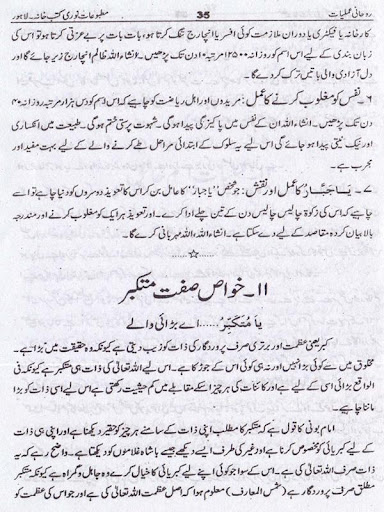 روحانی عملیات 35 مطبوعات نوری کتب خانہ۔ لاہور
کارخانہ یا فیکٹری یا دوران ملازمت کوئی افسر یا انچارج تنگ کرتا ہو، بات بات پر بے عزتی کرتا ہو تو اس کی
زبان بندی کے لیے اس اسم کو روزانہ ۲۵۰۰ مرتبہ ۱۰ دن تک پڑھیں۔ انشاء اللہ ظالم انچارج زیر ہو جائے گا اور
دل آزادی والی باتیں ترک کردے گا۔
۶۔ نفس کو مغلوب کرنے کا عمل: مریدوں اور اہل ریاضت کو چاہیے کہ اس اسم کو دس ہزار مرتبہ روزانہ ۴۰
دن تک پڑھیں۔ انشاء اللہ ان کے نفس میں پاکیزگی پیدا ہو گی۔ شہوت پرستی ختم ہو گی۔ طبیعت میں انکساری
اور نیک نیتی پیدا ہو جائے گی اس لیے یہ سلوک کے ابتدائی مراحل طے کرنے والے کے لیے بہت مفید اور
مجرب ہے۔
۷۔ یَا جَبَّارُ کا عمل اور نقش: جو شخص ”یا جبار“ کا عامل بن کر اس کا تعویذ دوسروں کو دینا چاہے تو اسے
چاہیے کہ اس کی زکوۃ چالیس چالیس دن کے تین چلے ادا کرے۔ اور تعویذ ہر ایک کو مغلوب کرنے اور مندرجہ
بالا بیان کردہ مقاصد کے لیے دے سکتا ہے۔ انشاء اللہ اللہ مہربانی کرے گا۔
۱۱۔ خواص صفت متکبر
یَا مُتَکَبِّرُ ..... اے بڑائی والے
کبر یعنی عظمت اور برتری صرف پروردگار کی ذات کو زیب دیتی ہے کیونکہ وہ حقیقت میں بڑا ہے۔
مخلوق میں سے کوئی بڑا نہیں اور نہ ہی کوئی اس کے جوڑ کا ہے۔ اس لیے اللہ تعالیٰ کی ذات ہی متکبر ہے کیونکہ فی
الواقع بڑائی اسی کے لیے ہے اور کائنات کی ہر چیز اسکے مقابلے میں کم حیثیت رکھتی ہے اس لیے اسی ذات کو بڑا
ماننا چاہیے۔
امام بونی کا قول ہے کہ متکبر کا مطلب اپنی ذات کے سامنے ہر چیز کو حقیر دیکھنا ہے اور اپنی ہی ذات
کے لیے کبریائی کو مخصوص کرنا ہے اور غیر کی طرف ایسے دیکھے جیسے بادشاہ غلاموں کو دیکھتا ہے۔ واضح رہے کہ یہ
ذات صرف اللہ تعالیٰ کی ہے۔ اس کے سوا جو کوئی اپنے لیے کبریائی کا خیال کرے وہ جاہل و گمراہ ہے کیونکہ متکبر
مطلق صرف پروردگار ہے (شمس المعارف) معلوم ہوا کہ اصل عظمت اللہ تعالیٰ کی ہے اور جو اس کی عظمت کو